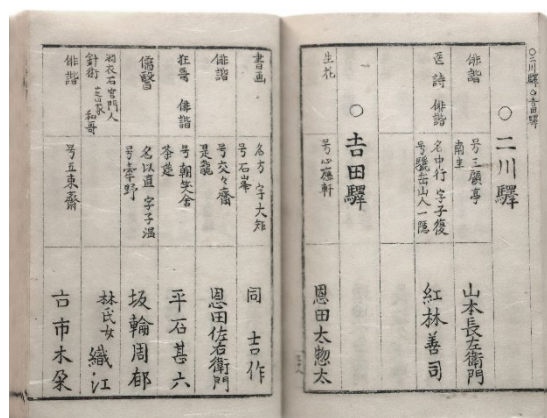 〇二川驛〇吉田驛
〇二川驛
俳諧
号三顧亭
南圭
山本長左衛門
医 詩 俳諧
名中行 字子復
山人一隠
紅林善司
〇吉田驛
生花
号心雁軒
恩田太惣太
書画
名方 字大矩
号石峯
同 吉作
俳諧
号交々齋
是龍
恩田佐右衛門
狂哥 俳諧
号朝笑舎
茶莚
平石甚六
儒醫
名以直 字子温
号牽野
坂輪周郁
羽衣石宮門人
針術 和哥
林氏女 織江
俳諧
号五東齋
古市木朶